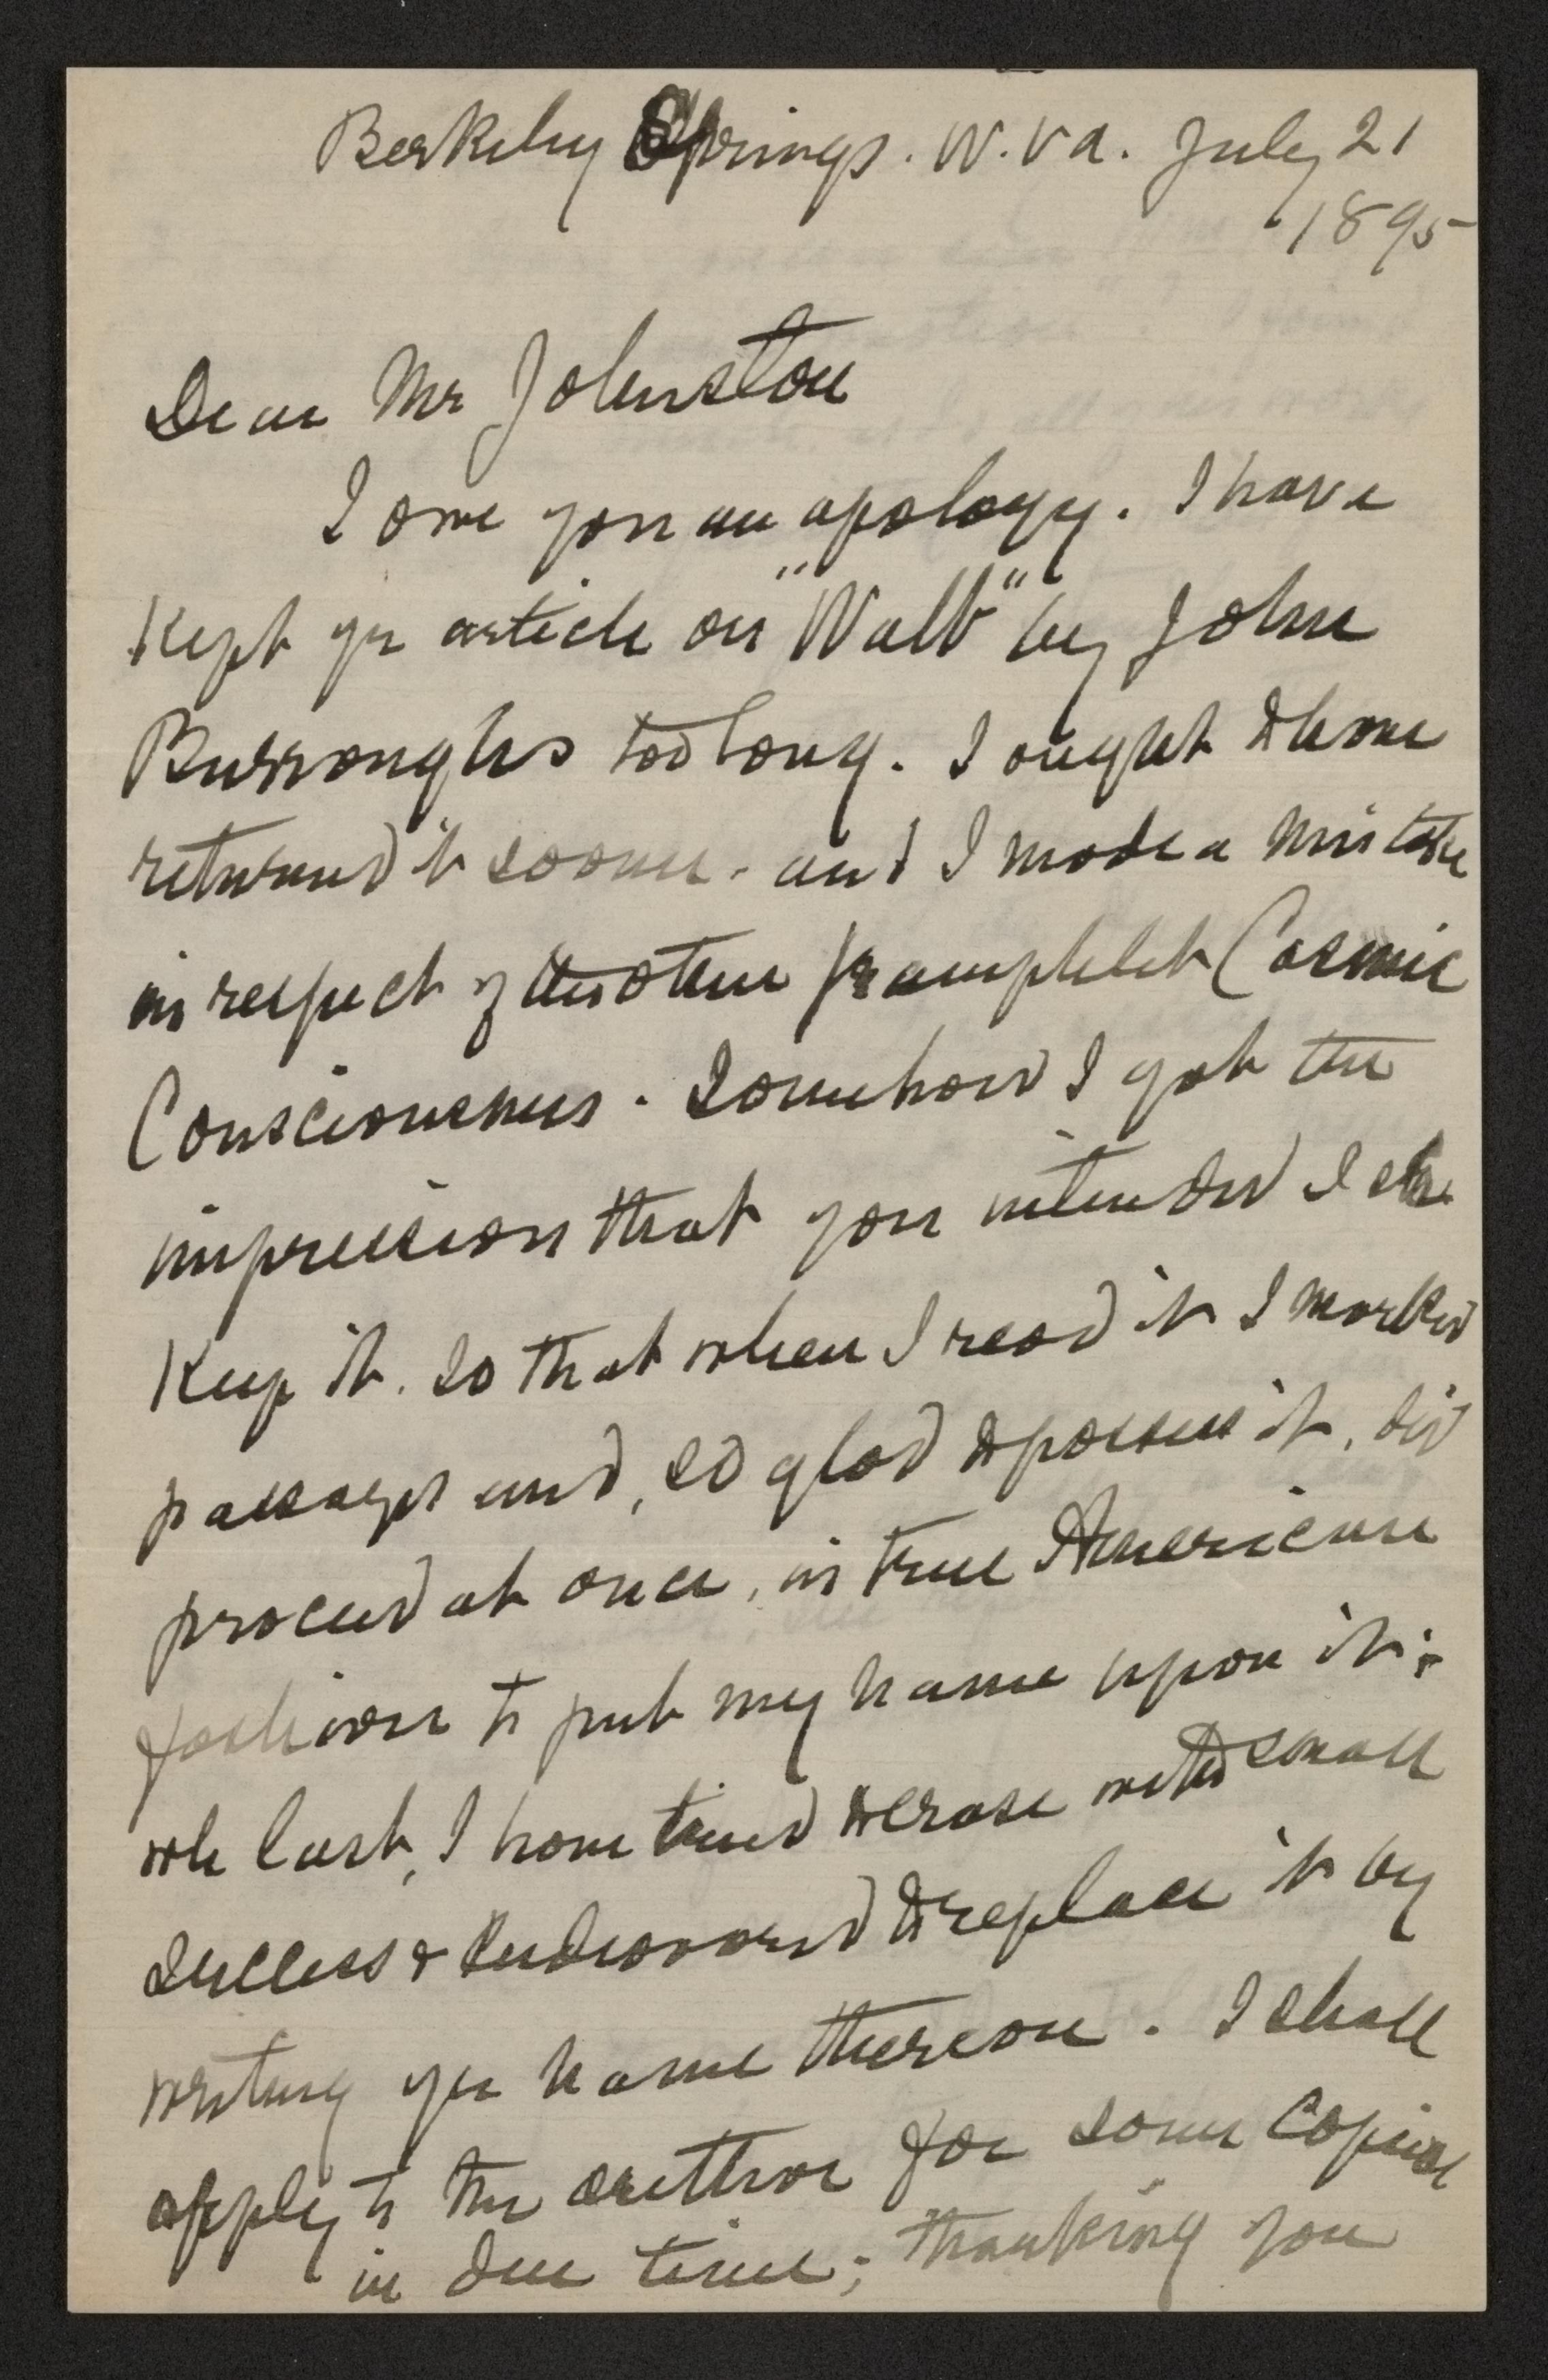 Berkeley Springs. W. Va. July 21
1895
Dear Mr Johnston
I owe you an apology. I have
Kept yr article on "Walt" by John
Burroughs too long. I ought to have
returned it sooner. and I made a mistake
in respect of the other pamphlet Cosmic
Consciousness. Somehow I got the
impression that you intended I sh
Keep it. So that when I read it I marked
passages and, so glad to possess it, did
proceed at once, in true American
fashion to put my name upon it:
wh last, I have tried to erase with small
success & Endeavored to replace it by
writing yr name thereon. I shall
apply to the author for some Copies
in due time; thanking you